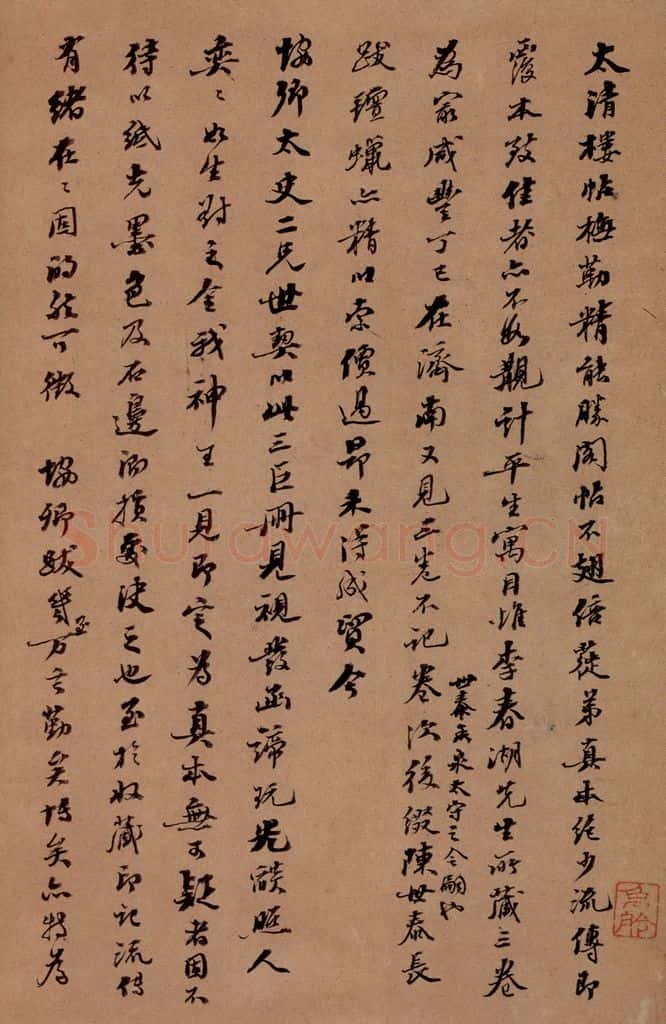 太清樓帖橅勒精能勝閣帖不翅倍蓰弟真本絶少流傳即
覆本致佳者亦不易覯計平生寓目惟李春湖先生所藏三卷
為冣咸豐丁巳在濟南又見三卷不記卷次後綴陳世泰長
世泰玉泉太守之令嗣也
跋氊蠟亦精以索價過昂未得成貿今
堅卿太史二兄世契以此三巨冊見視發函諦玩光燄照人
奕〻如生對之令我神王一見即定為真本無可疑者固不
待以紙光墨色及石邊泐損處決之也至於收藏印記流傳
有緒在〻固的然可徵 堅卿跋幾至萬言勤矣博矣亦特為
Shufawang.CN